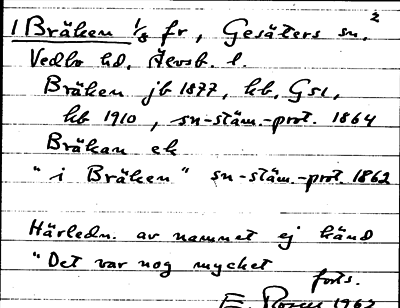 1 Bräken 1/8 fr, Gesäters sn. 2
Vedbo hd. Älvsb. l.
Bräken jb 1877, kb, GSK,
kb 1910, sn-stäm.-prot. 1864
Bräkan ek
"i Bräken" sn-stäm.-prot. 1862
Härledn. av namnet ej känd
"Det var nog mycket
forts.
E. 1963